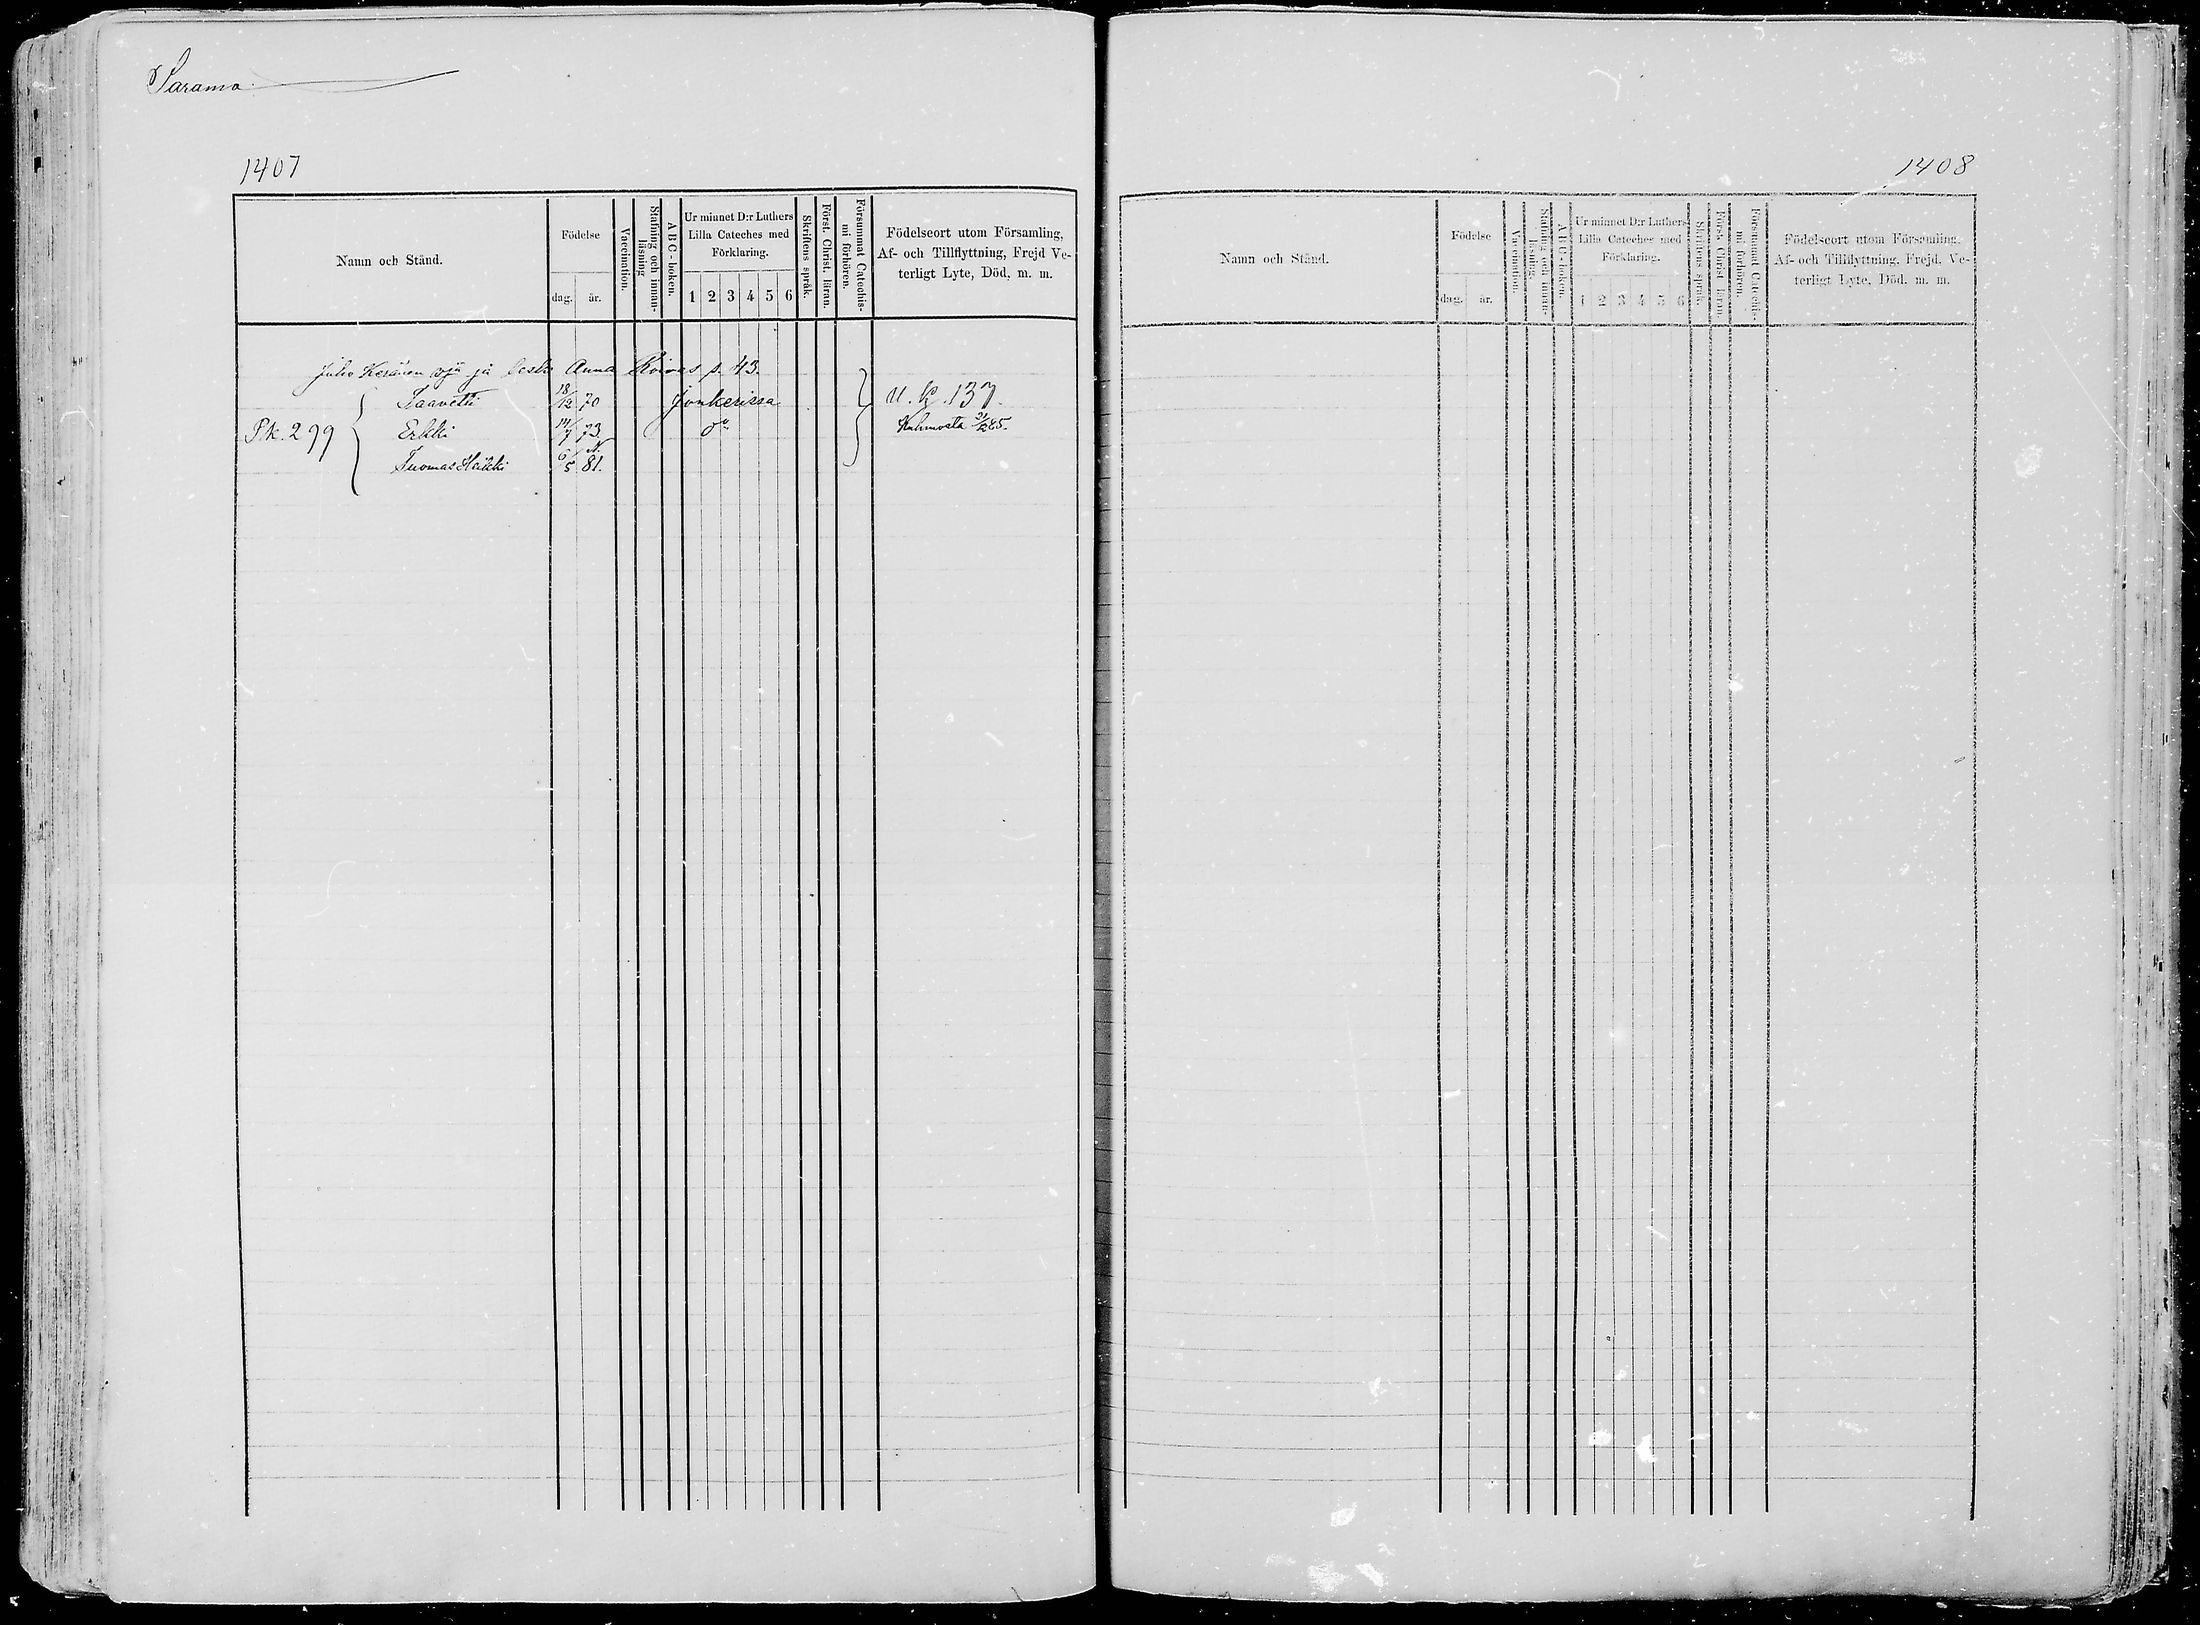 Sarama
1407
Namn och Stånd.
Födelse
dag. år.
Vaccination.
Stafning och innan-
läsning
A B C - boken.
Ur minnet D:r Luthers
Lilla Cateches med
Förklaring.
1 2 3 4 5 6
Skriftens språk.
Först. Christ. läran.
Försummat Catechis-
mi förhören.
Födelseort utom Församling,
Af- och Tillflyttning, Frejd Ve-
terligt Lyte, Död, m. m.
Juho Keränen ja leski Anna Roivas s. 43.
Taavetti 18/12 70 Jonkerissa U. K. 137.
Pk. 299 Erkki 14/7 73 do Kuhmosta 85.
Tuomas Heikki 6/5 81.
1408
Namn och Stånd.
Födelse
dag. år.
Vaccination.
Stafning och innan-
läsning.
A B C - boken.
Ur minnet D:r Luthers
Lilla Cateches med
Förklaring.
1 2 3 4 5 6
Skriftens språk.
Först. Christ. läran.
Försummat Catechis-
mi förhören.
Födelseort utom Församling,
Af- och Tillflyttning, Frejd, Ve-
terligt Lyte, Död, m. m.